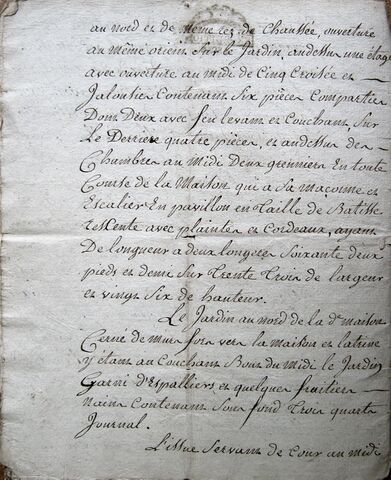 au nord et de même rez de Chaussée, ouverture
au même orient sur le Jardin, audessus une étage
avec ouverture au midi de Cinq Croisée et
Jalousier Contenant Six pièces Compartie
Dont Deux avec feu levant et Couchant, Sur
Le Derriere quatre pièces, et audessus des
Chambres au midi Deux grenniers En toute
Comte de la Maison qui a Sa maconne et
Escalier En pavillon en Taille de Batisse
recente avec plainte et Cordeaux, ayant
De longueur a deux longere Soixante deux
pieds et demie Sur Trente Trois de largeur
et vingt Six de hauteur.
Le Jardin au nord de la dte maison
Cerné de murs fors vers la maison et latrine
y étant au Couchant Bout du midi le Jardin
Garni d'Espalliers et quelques fruitier
Nains Contenant Sous fond Trois quart
Journal.
L'issue Servant de Cour au midi